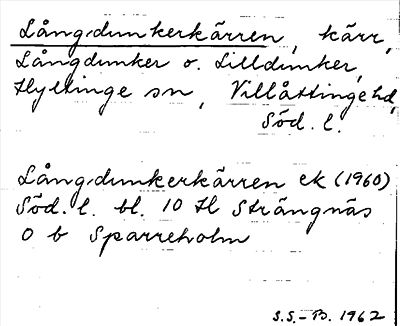 Långdunkerkärren, kärr,
Långdunker o. Lilldunker,
Hyltinge sn, Villåttinge hd,
Söd. l.
Långdunkerkärren ek (1960)
Söd. l. bl. 10 H Strängnäs
O b Sparreholm
S.S.-B. 1962